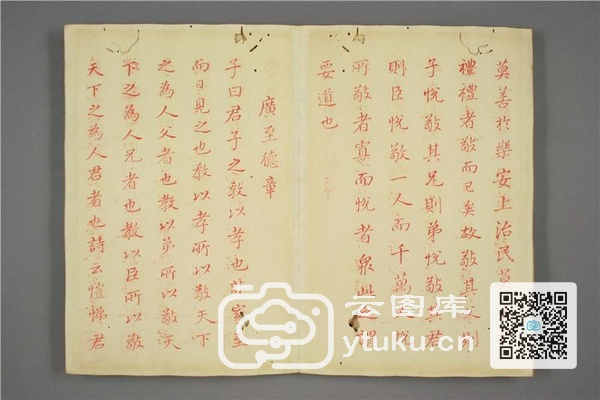 莫善於樂安上治民
禮禮者敬而已矣故敬其則
子悅敬其兄則弟悅敬其君
則臣悅敬一人而千萬人悅
所敬者寡而悅者衆此
要道也
廣至德章
子曰君子之教以孝也非家至
而日見之也教以孝所以敬天下
之為人父者也教以弟所以敬天
下之為人兄者也教以臣所以敬
天下之為人君者也詩云愷悌君
云图库
ytuku.cn